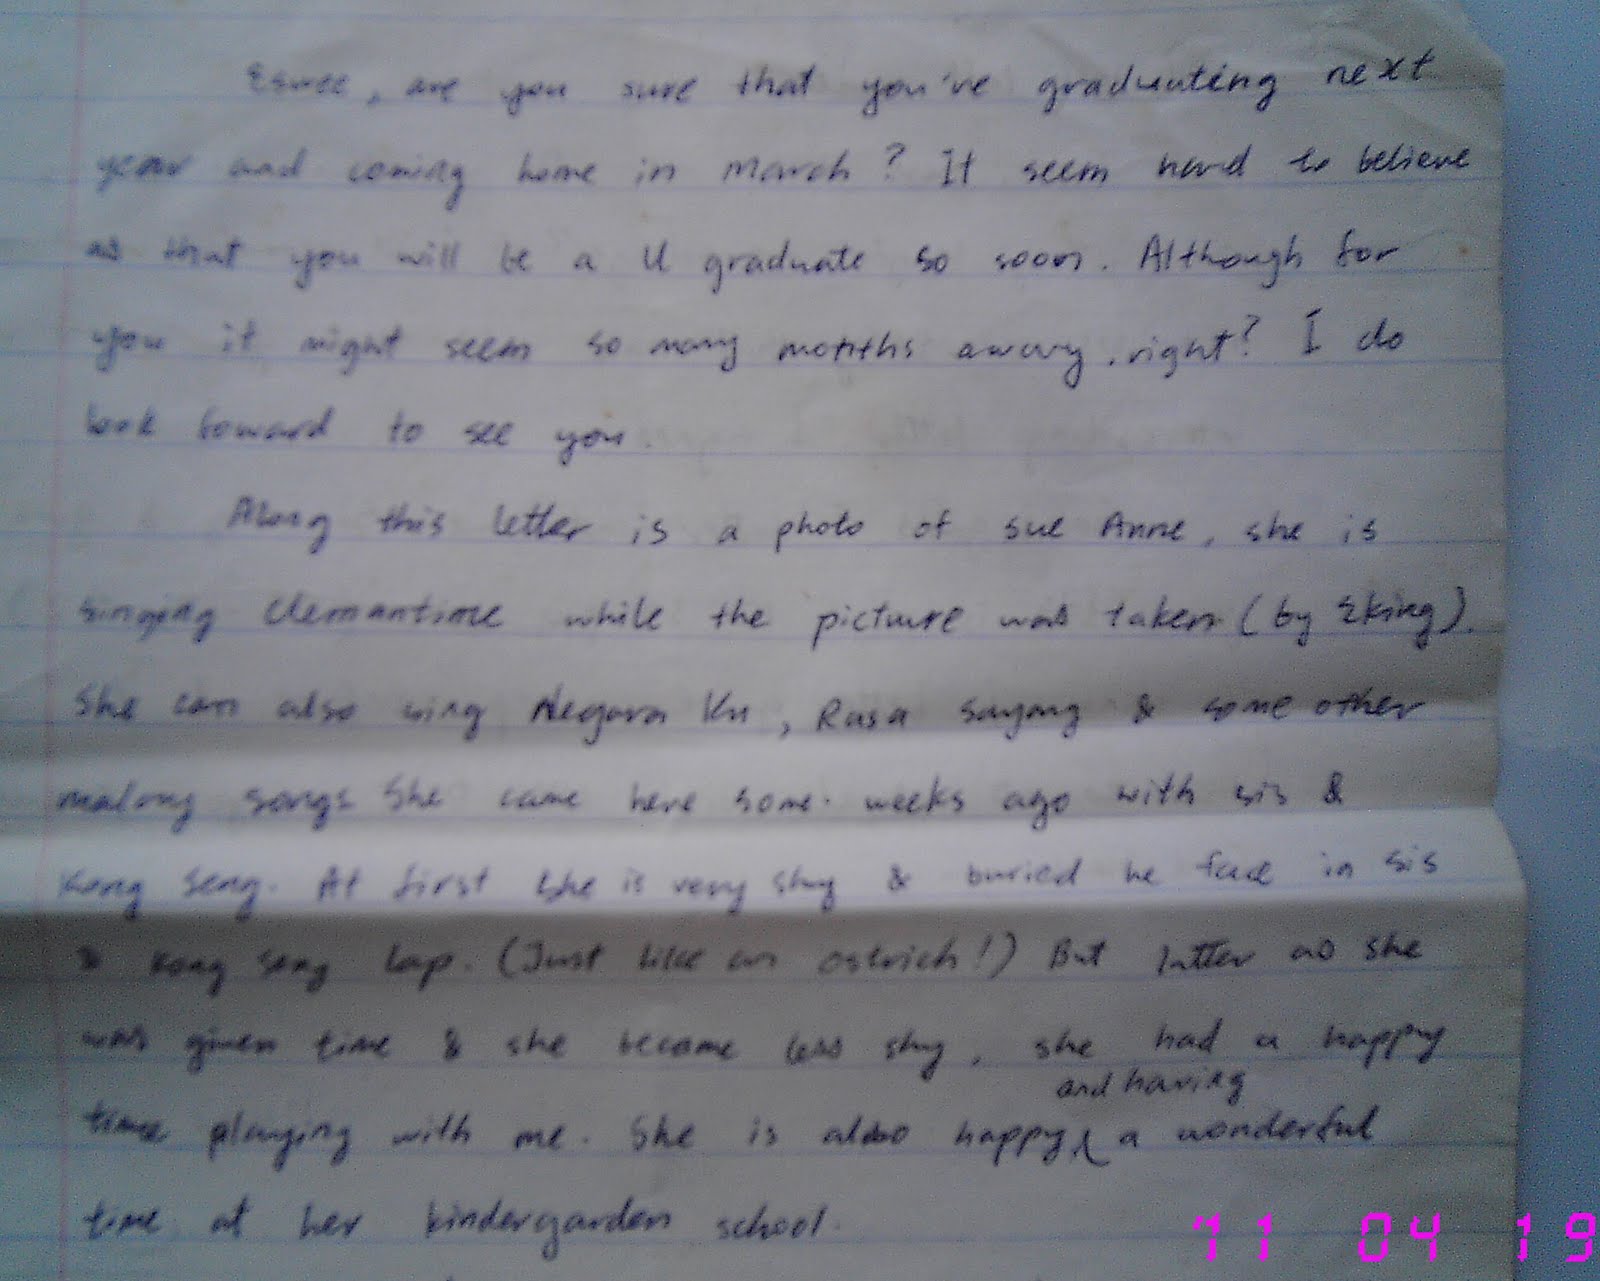 Eswee, are you sure that you've graduating next
year and coming home in March? It seem hard to believe
as that you will be a U graduate so soon. Although for
you it might seem so many months away, right? I do
look foward to see you.
Along this letter is a photo of Sue Anne, she is
singing Clemantime while the picture was taken (by Eking).
She can also sing Negara Ku, Rasa Sayang & some other
malay songs. She came here some weeks ago with sis &
Kong Seng. At first she is very shy & buried he face in sis
& Kong Seng lap. (Just like an ostrich!) But latter as she
was given time & she became less shy, she had a happy
and having
time playing with me. She is also happy a wonderful
time at her kindergarden school.
'11 04 19